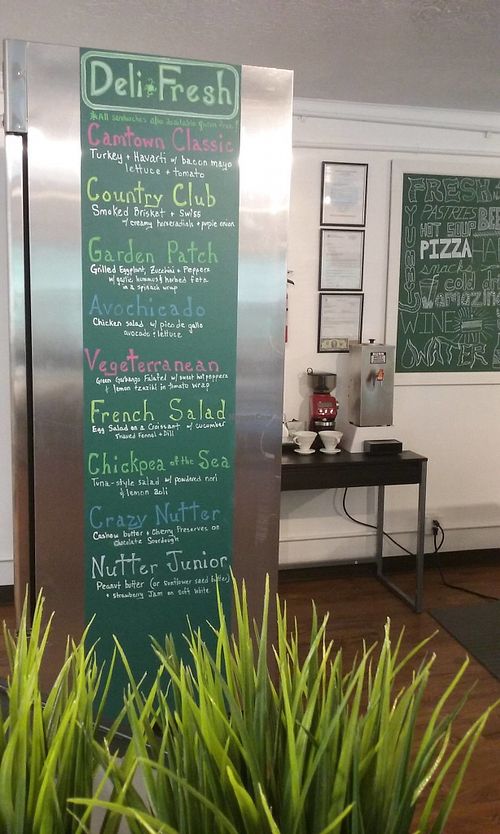 Deli Fresh
*All sandwiches also available gluten free!
Camtown Classic
Turkey + Havarti w/ bacon mayo
lettuce + tomato
Country Club
Smoked Brisket + Swiss
w/ creamy horseradish + purple onion
Garden Patch
Grilled Eggplant, Zucchini + Peppers
w/ garlic hummus & herbed feta
in a spinach wrap
Avochicado
Chicken salad w/ pico de gallo
avocado + lettuce
Vegeterranean
Green Garbanzo Falafel w/ sweet hot peppers
+ lemon tzaziki in tomato wrap
French Salad
Egg Salad on a Croissant w/ cucumber
Shaved Fennel + Dill
Chickpea of the Sea
Tuna-style salad w/ powdered nori
& lemon aoli
Crazy Nutter
Cashew butter + Cherry Preserves on
chocolate Sourdough
Nutter Junior
Peanut butter (or Sunflower seed butter)
+ strawberry Jam on Soft White
FRESH
YUMMY
PASTRIES
HOT SOUP
PIZZA
snacks
cold
WINE